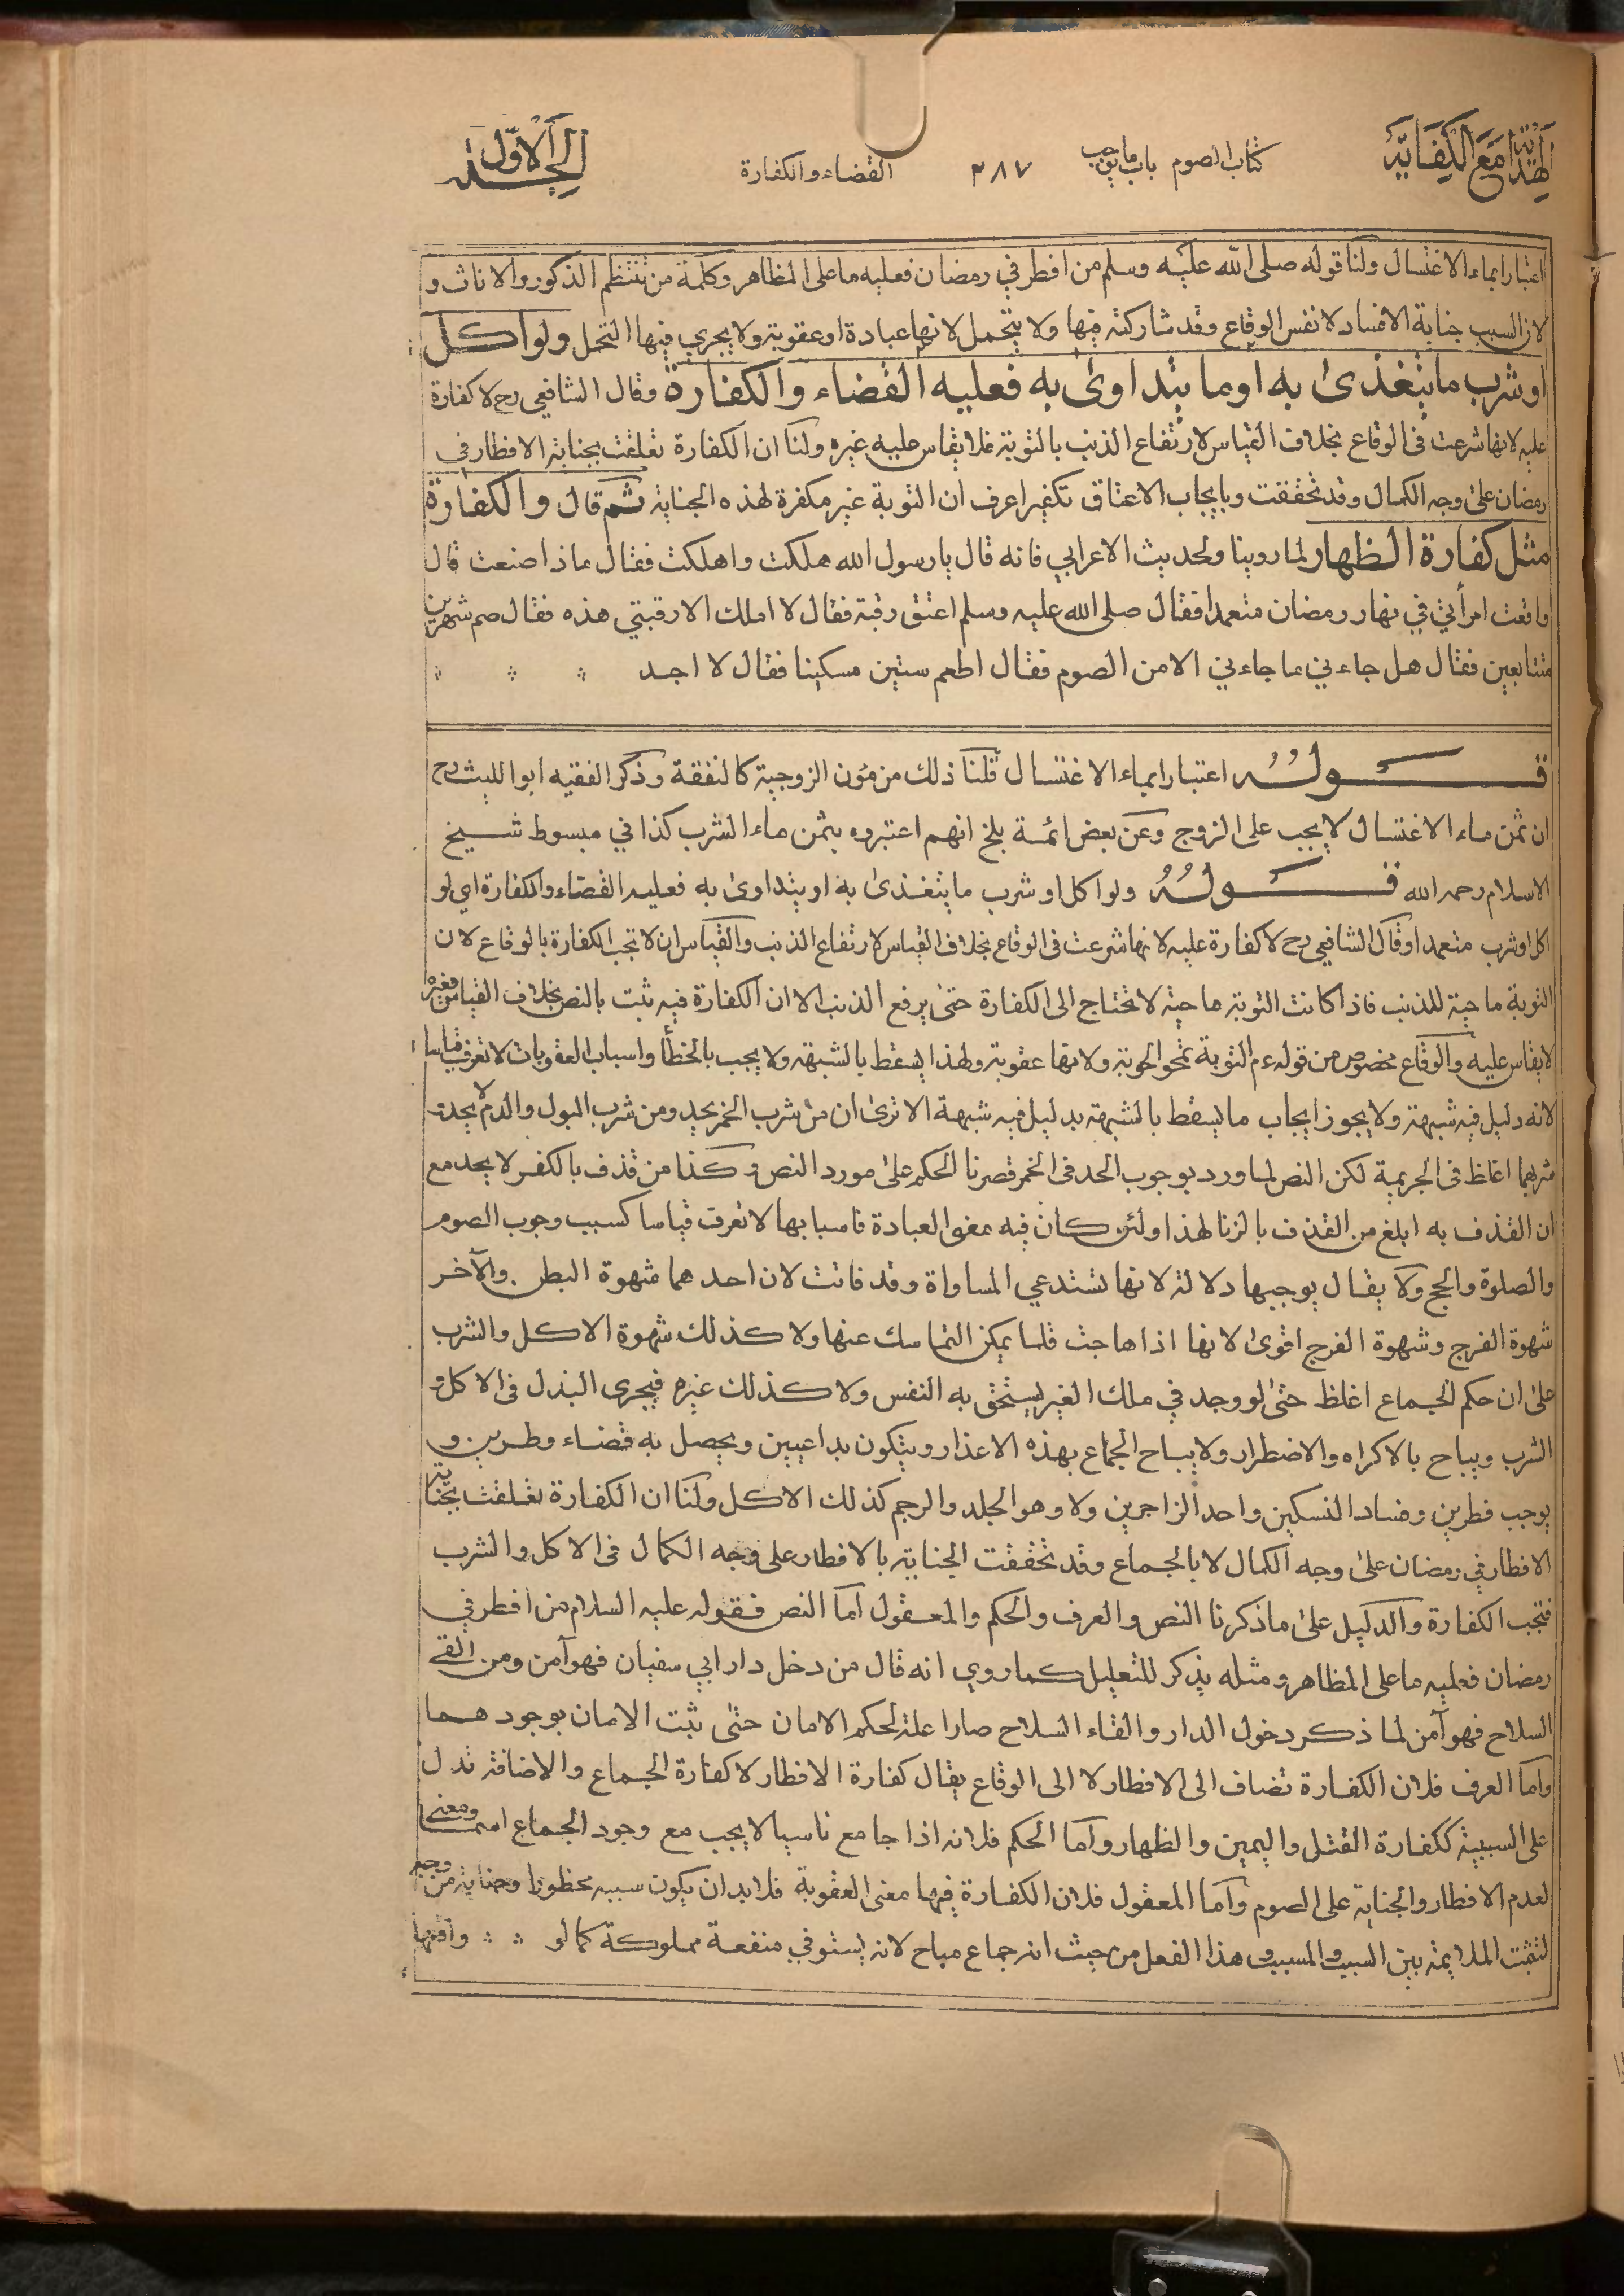 الهداية مع الكفاية كتاب الصوم باب ما يوجب ٢٨٧ القضاء والكفارة الجلد الاول
اعتبارا بماء الاغتسال ولنا قوله صلى الله عليه وسلم من افطر في رمضان فعليه ما على المظاهر وكلمة من تنتظم الذكور والاناث و
لان السبب جناية الافساد لا نفس الوقاع وقد شاركته فيها ولا يتحمل لانها عبادة او عقوبة ولا يجري فيها التحمل ولو اكل
او شرب ما يتغذى به او ما يتداوى به فعليه القضاء والكفارة وقال الشافعي رح لا كفارة
عليه لانها شرعت فى الوقاع بخلاف القياس لارتفاع الذنب بالتوبة فلا يقاس عليه غيره ولنا ان الكفارة تعلقت بجناية الافطار في
رمضان على وجه الكمال وقد تحققت وبايجاب الاعتاق تكفيرا عرف ان التوبة غير مكفرة لهذه الجناية ثم قال والكفارة
مثل كفارة الظهار لما روينا ولحديث الاعرابي فانه قال يا رسول الله هلكت واهلكت فقال ماذا صنعت قال
واقعت امرأتي في نهار رمضان متعمدا فقال صلى الله عليه وسلم اعتق رقبة فقال لا املك الا رقبتي هذه فقال صم شهرين
متتابعين فقال هل جاءني ما جاءني الا من الصوم فقال اطعم ستين مسكينا فقال لا اجد
قوله اعتبارا بماء الاغتسال قلنا ذلك من مؤن الزوجية كالنفقة وذكر الفقيه ابو الليث رح
ان ثمن ماء الاغتسال لا يجب على الزوج وعن بعض ائمة بلخ انهم اعتبروه بثمن ماء الشرب كذا في مبسوط شيخ
الاسلام رحمه الله قوله ولو اكل او شرب ما يتغذى به او يتداوى به فعليه القضاء والكفارة اي لو
اكل او شرب متعمدا وقال الشافعي رح لا كفارة عليه لانها شرعت فى الوقاع بخلاف القياس لارتفاع الذنب والقياس ان لا تجب الكفارة بالوقاع لان
التوبة ماحية للذنب فاذا كانت التوبة ماحية لا تحتاج الى الكفارة حتى يرفع الذنب الا ان الكفارة فيه ثبت بالنص بخلاف القياس فغيره
لا يقاس عليه والوقاع مخصوص من قوله عم التوبة تمحو الحوبة ولانها عقوبة ولهذا يسقط بالشبهة ولا يجب بالخطأ واسباب العقوبات لا تعرف قياسا
لانه دليل فيه شبهة ولا يجوز ايجاب ما يسقط بالشبهة بدليل فيه شبهة الا ترى ان من شرب الخمر يحد ومن شرب البول والدم لا يحد
شربهما اغلظ فى الجريمة لكن النص لما ورد بوجوب الحد فى الخمر قصرنا الحكم على مورد النص وكذا من قذف بالكفر لا يحد مع
ان القذف به ابلغ من القذف بالزنا لهذا ولئن كان فيه معنى العبادة فاسبابها لا تعرف قياسا كسبب وجوب الصوم
والصلوة والحج ولا يقال بوجبها دلالة لانها تستدعي المساواة وقد فاتت لان احدهما شهوة البطن والآخر
شهوة الفرج وشهوة الفرج اقوى لانها اذا هاجت قلما يمكن التماسك عنها ولا كذلك شهوة الاكل والشرب
على ان حكم الجماع اغلظ حتى لو وجد في ملك الغير يستحق به النفس ولا كذلك غيره فيجرى البذل فى الاكل و
الشرب ويباح بالاكراه والاضطرار ولا يباح الجماع بهذه الاعذار ويتكون بداعيين ويحصل به قضاء وطرين و
يوجب فطرين وفساد النسكين واحد الزاجرين ولا وهو الجلد والرجم كذلك الاكل ولنا ان الكفارة تعلقت بجناية
الافطار في رمضان على وجه الكمال لا بالجماع وقد تحققت الجناية بالافطار على وجه الكمال فى الاكل والشرب
فتجب الكفارة والدليل على ما ذكرنا النص والعرف والحكم والمعقول اما النص فقوله عليه السلام من افطر في
رمضان فعليه ما على المظاهر ومثله يذكر للتعليل كما روي انه قال من دخل دار ابي سفيان فهو آمن ومن القى
السلاح فهو آمن لما ذكر دخول الدار والقاء السلاح صارا علة لحكم الامان حتى ثبت الامان بوجودهما
واما العرف فلان الكفارة تضاف الى الافطار لا الى الوقاع يقال كفارة الافطار لا كفارة الجماع والاضافة تدل
على السببية ككفارة القتل واليمين والظهار واما الحكم فلانه اذا جامع ناسيا لا يجب مع وجود الجماع اسما ومعنى
لعدم الافطار والجناية على الصوم واما المعقول فلان الكفارة فيها معنى العقوبة فلا بد ان يكون سببه محظورا وجناية من وجه
لتثبت الملايمة بين السبب والمسبب وهذا الفعل من حيث انه جماع مباح لانه يستوفي منفعة مملوكة كما لو واقعها